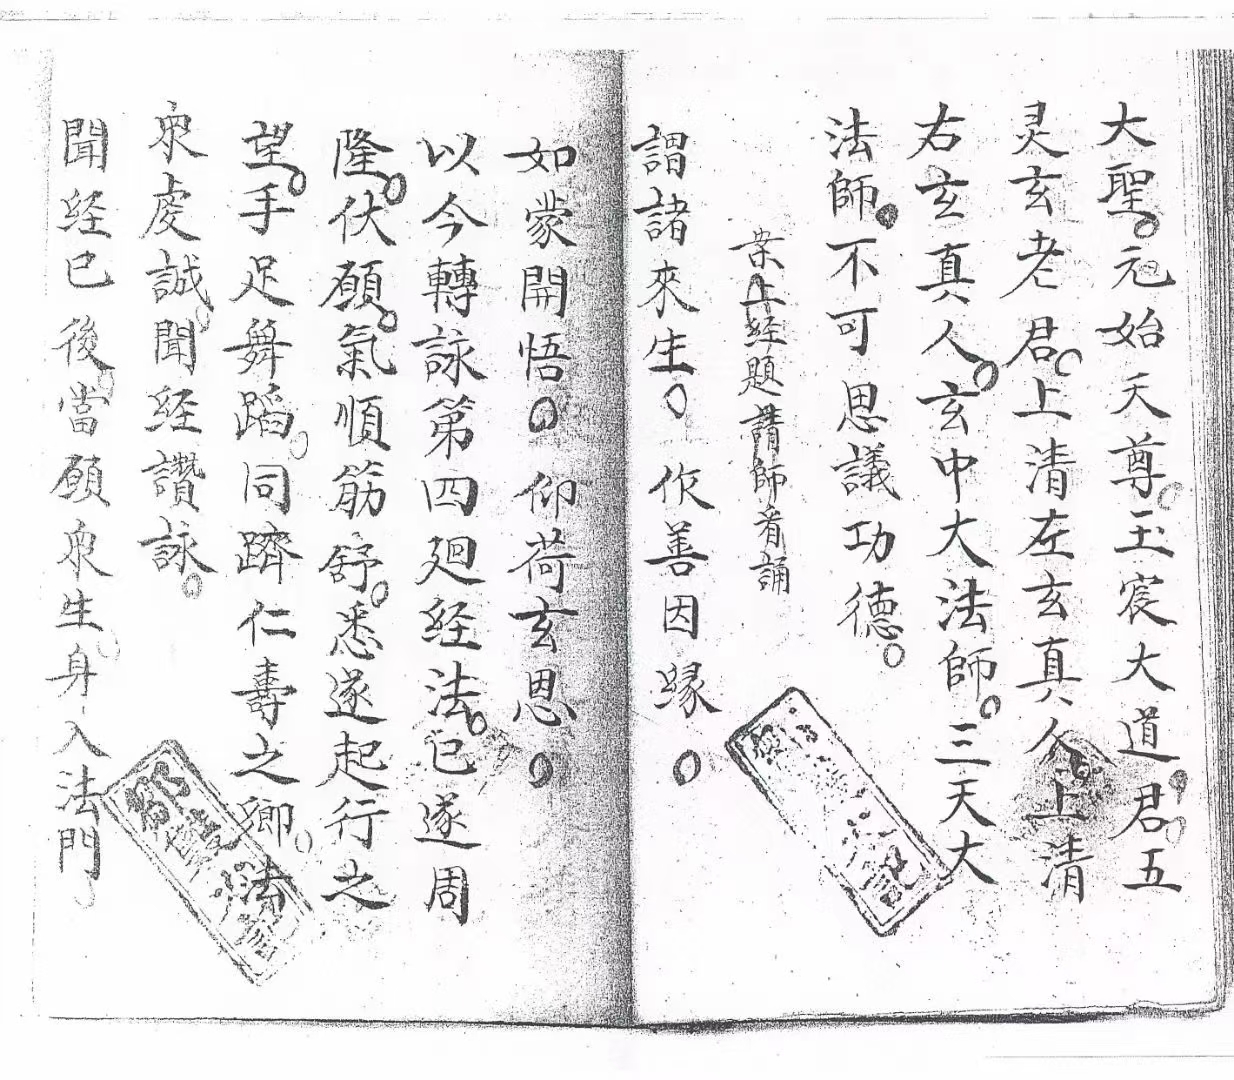 大聖。元始天尊。玉宸大道君。五
灵玄老君。上清左玄真人。上清
右玄真人。玄中大法師。三天大
法師。不可思議功德。
案上経題請師看誦
謂諸來生。作善因縁。
如蒙開悟。仰荷玄恩。
以今轉詠第四廻経法。已遂周
隆。伏願。氣順筋舒。悉遂起行之
望。手足舞蹈。同躋仁壽之鄉。法
衆虔誠。聞経讚詠。
聞経已後。當願衆生。身入法門。